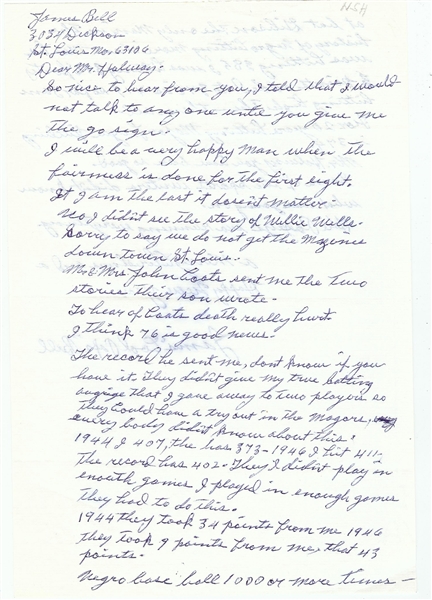 HSH
James Bell
3034 Dickson
St. Louis Mo. 63106
Dear Mr. Holway.
So nice to hear from you, I told that I would
not talk to any one until you give me
the go sign.
I will be a very happy man when the
fairness is done for the first eight.
If I am the last it doesn't matter.
No I didn't see the story of Willie Wells.
Sorry to say we do not get the Mazine
down town St. Louis.
Mr & Mrs John Coats sent me the two
stories their son wrote.
To hear of Coats death really hurt.
I think 76 is good news.
The record he sent me, dont know if you
have it. They didn't give my true batting
avgrige that I gave away to two players so
they could have a try out in the Magors,
every body didn't know about this.
1944 I 407, the has 373 - 1946 I hit 411.
The record has 402. They I didn't play in
enouth games I played in enough games
they had to do this.
1944 they took 34 points from me 1946
they took 9 points from me, that 43
points.
Negro base ball 1000 or more times -